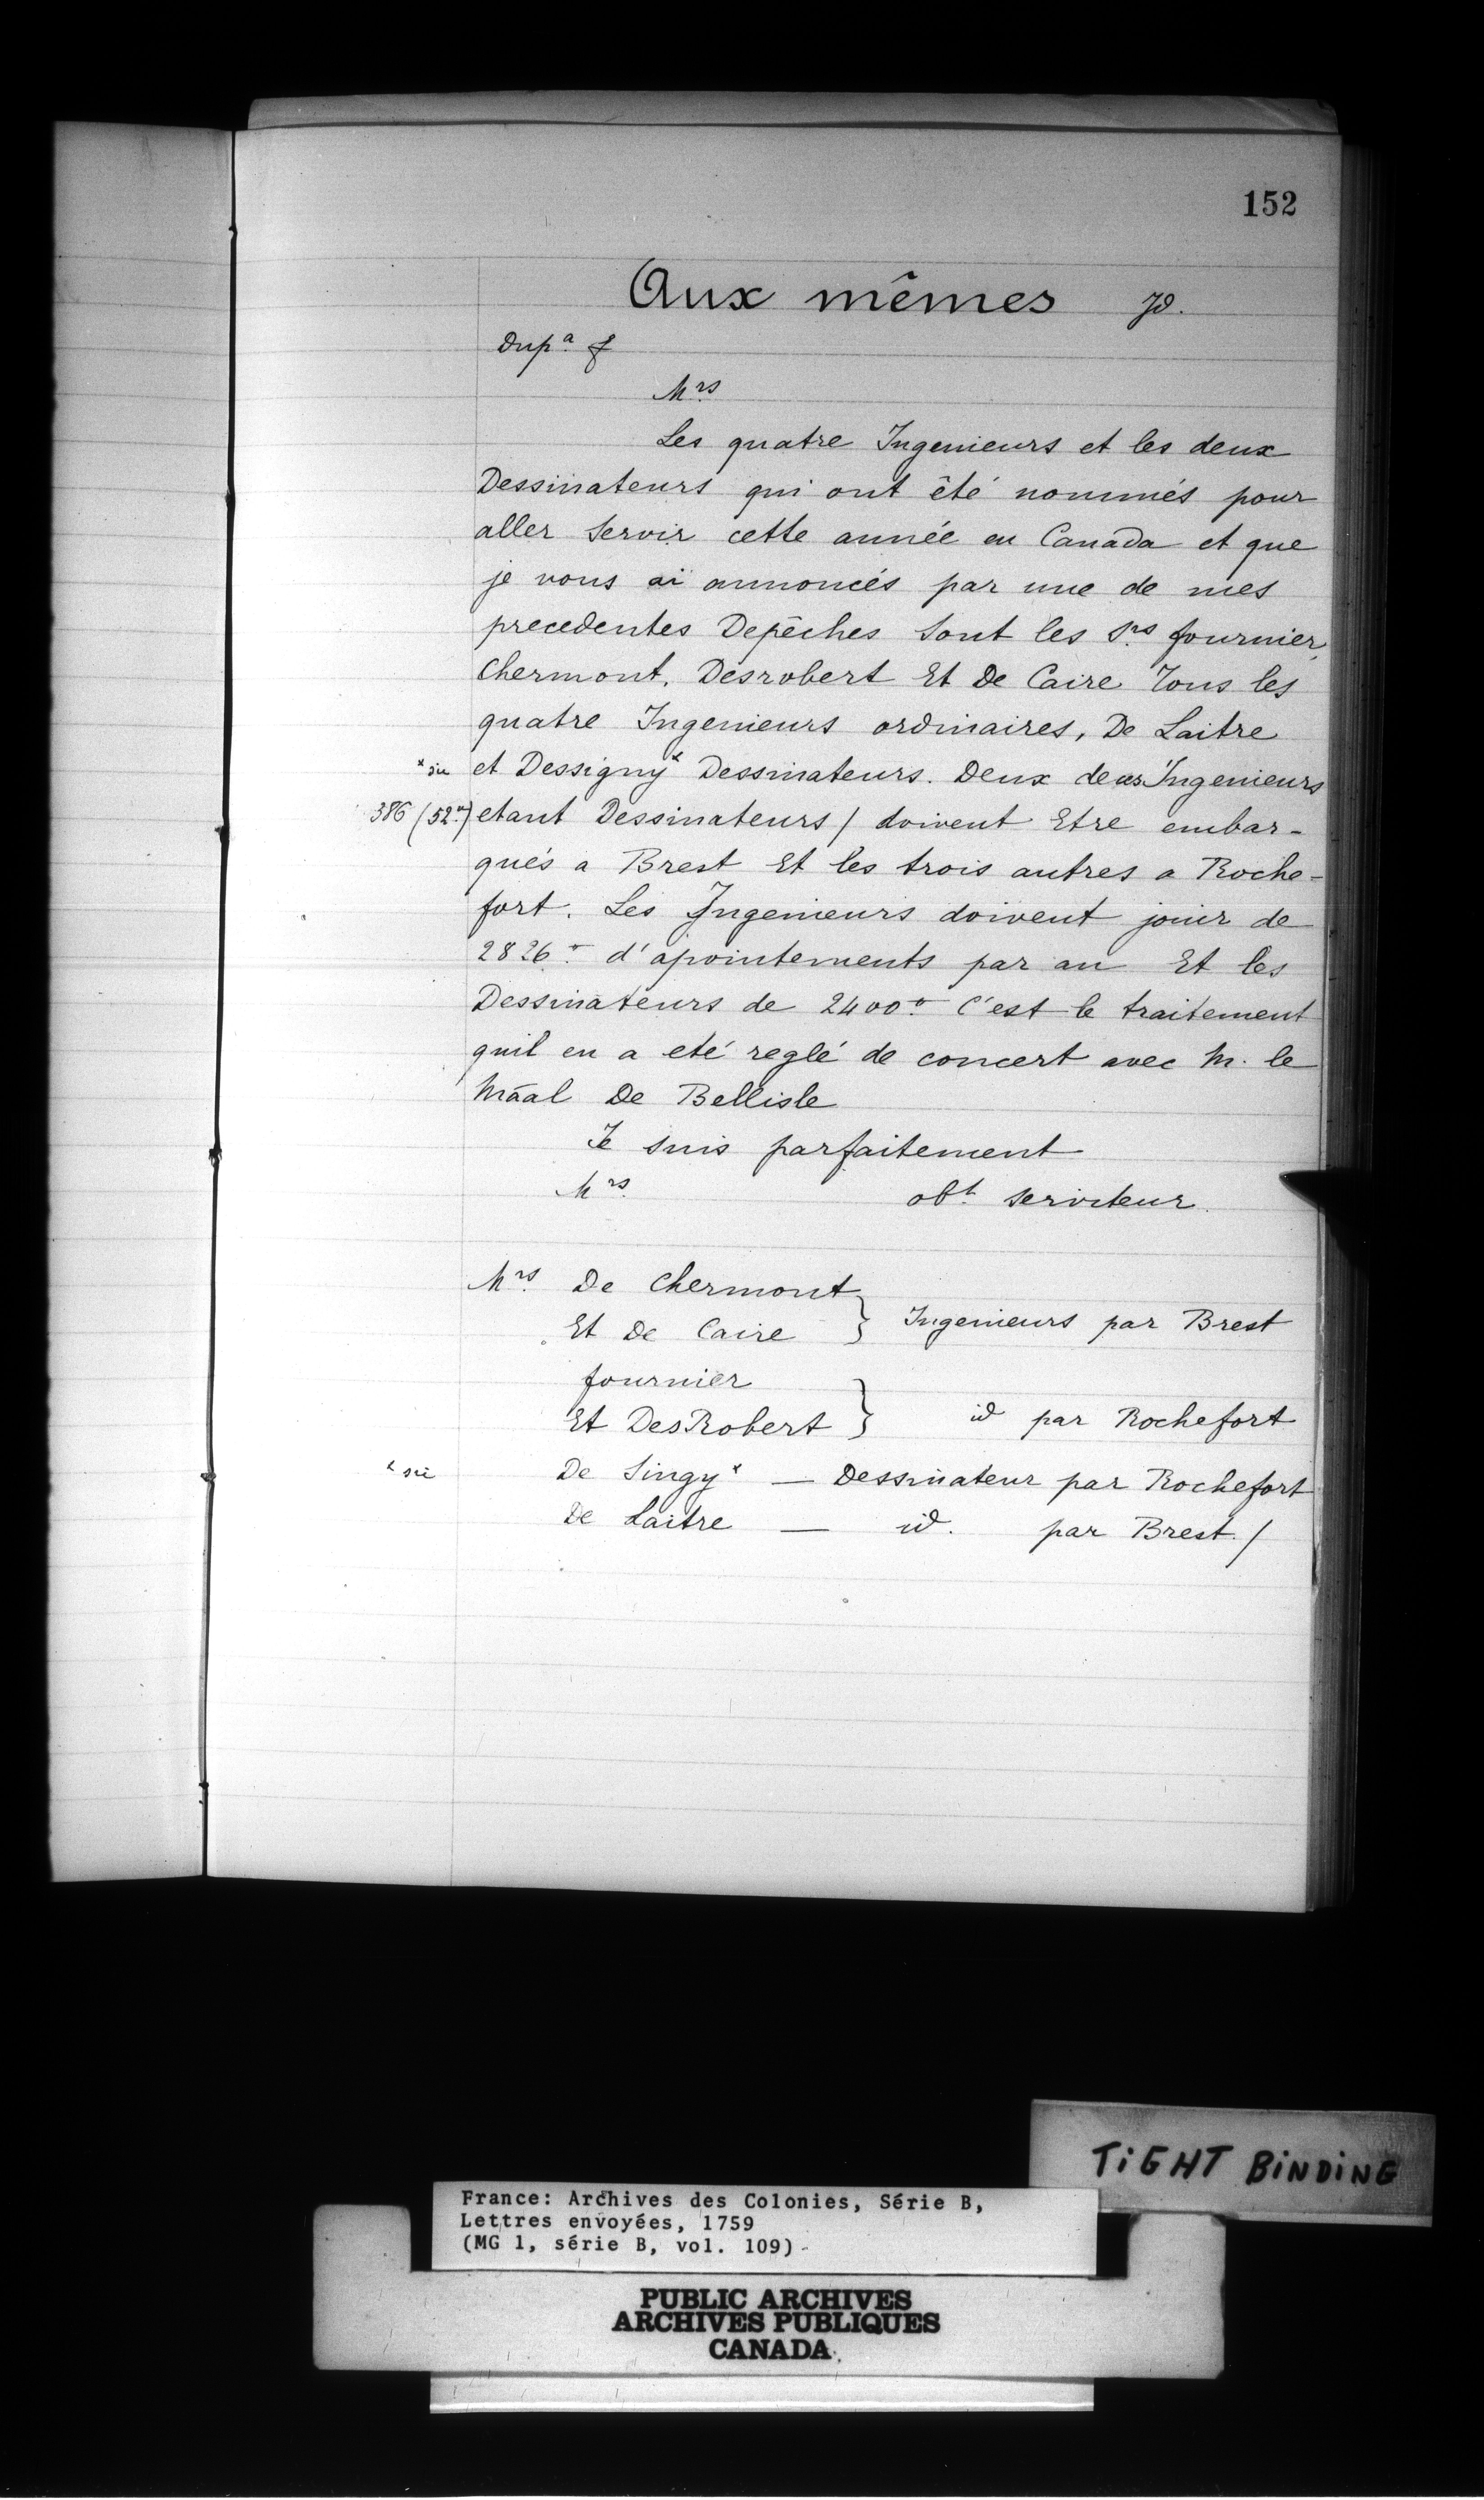 152
Aux mêmes Id.
Dupa. f
Mrs
Les quatre Ingenieurs et les deux
Dessinateurs qui ont êté nommés pour
aller Servir cette année en Canada et que
je vous ai annoncés par une de mes
precedentes Depêches Sont les Srs. fournier,
Chermont, Desrobert Et De Caire Tous les
quatre Ingenieurs ordinaires, De Laitre
*sic et Dessigny* Dessinateurs. Deux de ces Ingenieurs
386 (52) etant Dessinateurs / doivent Etre embar-
qués a Brest Et les trois autres a Roche-
fort. Les Ingenieurs doivent jouir de
2826 d'apointements par an Et les
Dessinateurs de 2400 C'est le traitement
quil en a eté reglé de concert avec M. le
Māal De Bellisle
Je suis parfaitement
Mrs. obt. serviteur.
Mrs. De Chermont
Et De Caire } Ingenieurs par Brest
fournier
Et DesRobert } id par Rochefort
*sic De Singy* — Dessinateur par Rochefort
De Laitre — id. par Brest. /
TIGHT BINDING
France: Archives des Colonies, Série B,
Lettres envoyées, 1759
(MG 1, série B, vol. 109)
PUBLIC ARCHIVES
ARCHIVES PUBLIQUES
CANADA